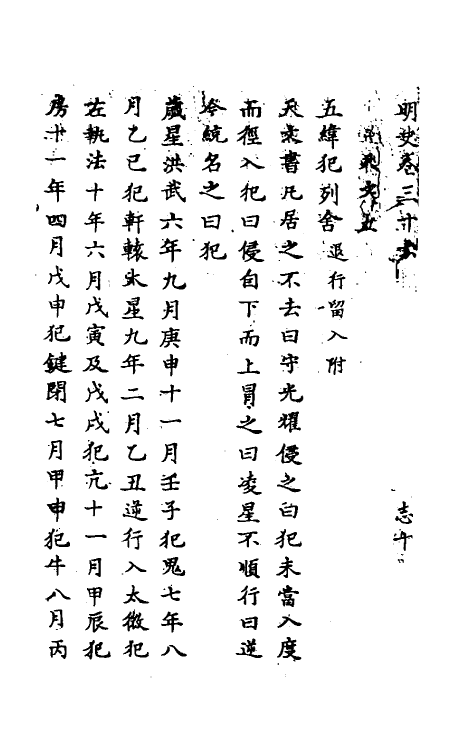 明史卷三十
志十
天文五
五緯犯列舍 退行留入附
天象書凡居之不去曰守光耀侵之曰犯未當入度
而徑入犯曰侵自下而上冒之曰凌星不順行曰逆
今統名之曰犯
歲星洪武六年九月庚申十一月壬子犯鬼七年八
月乙巳犯軒轅大星九年二月乙丑逆行入太微犯
左執法十年六月戊寅及戊戌犯亢十一月甲辰犯
房十一年四月戊申犯鍵閉七月甲申犯牛八月丙